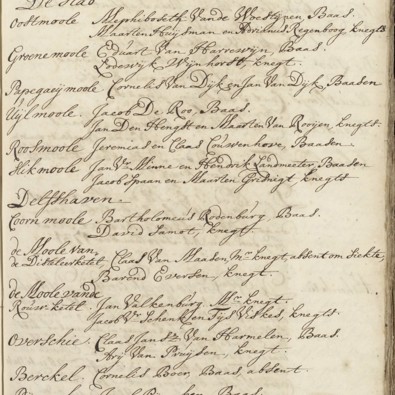 De Stad.
Oostmoole Mephiboseth Vande Woestyen, Baas.
Maarten Huijsman en Dirikus Regenboog, knegts
Groenemoole Evart Van Harreswijn, Baas.
Lodewijk Wijnhorst, knegt.
Papegaeijmoole Cornelis Van Dijk en Jan Van Dijk, Baasen
Uijlmoole. Jacob De Roo, Baas.
Jan Den Hengst en Maarten Van Roijen, knegts.
Roosmoole Jeremias en Claas Couwenhove, Baasen.
Hikmoole Jan Vr. Minne en Hendrik Landmeeter, Baasen
Jacob Spaan en Maarten knegts
Delfshaven.
Coornmoole Bartholomeus Rodenburg, Baas.
David Jamot, knegt
de Moole van
de Distileerketel Claas Van Maasen Mr. knegt, absent om Siekte,
Barend Eversen, knegt.
de Moole vande
Jan Valkenburg Mr. knegt.
Jacob Vr. Schenk en Tys Viskes, knegts.
Overschie. Claas Jansz. Van Harmelen, Baas.
Arij Van Pruijsen, knegt.
Berckel. Cornelis Boer, Baas, absent.
Baas.